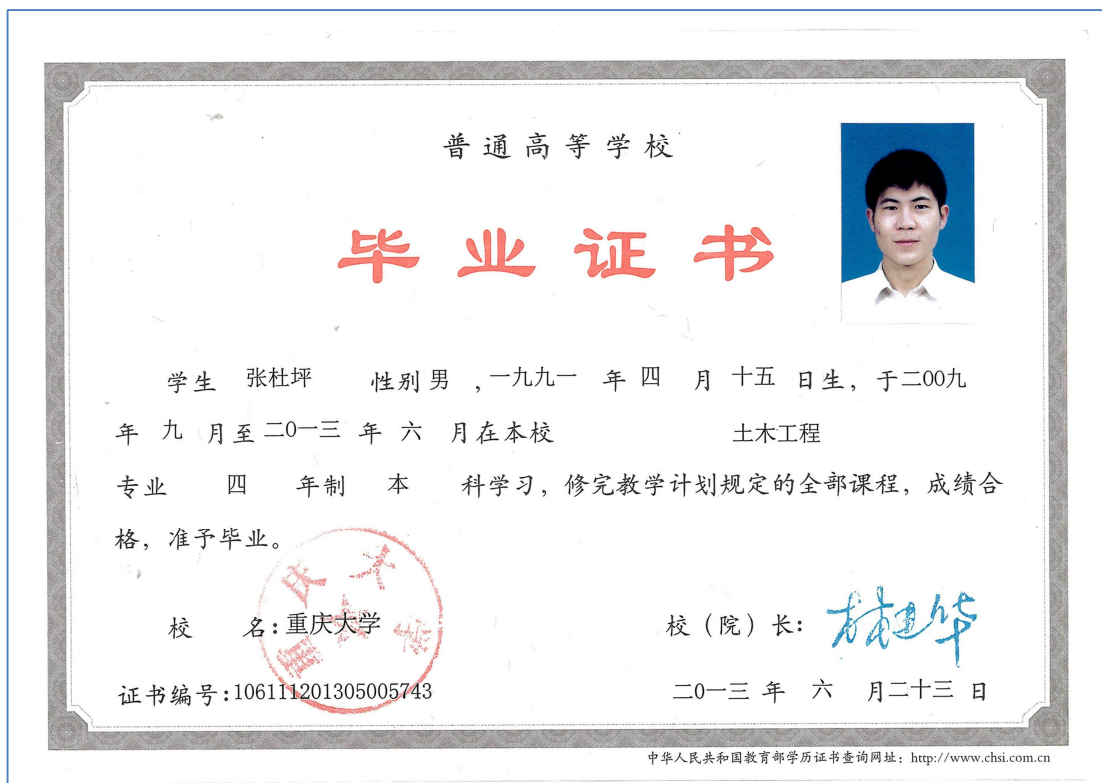 普通高等学校
毕业证书
学生 张杜坪 性别 男 ，一九九一 年 四 月 十五 日生，于二00九
年 九 月至 二0一三 年 六 月在本校 土木工程
专业 四 年制 本 科学习，修完教学计划规定的全部课程，成绩合
格，准予毕业。
重庆大学
校 名：重庆大学 校（院）长： 林建华
证书编号：106111201305005743 二0一三 年 六 月二十三 日
中华人民共和国教育部学历证书查询网址：http://www.chsi.com.cn